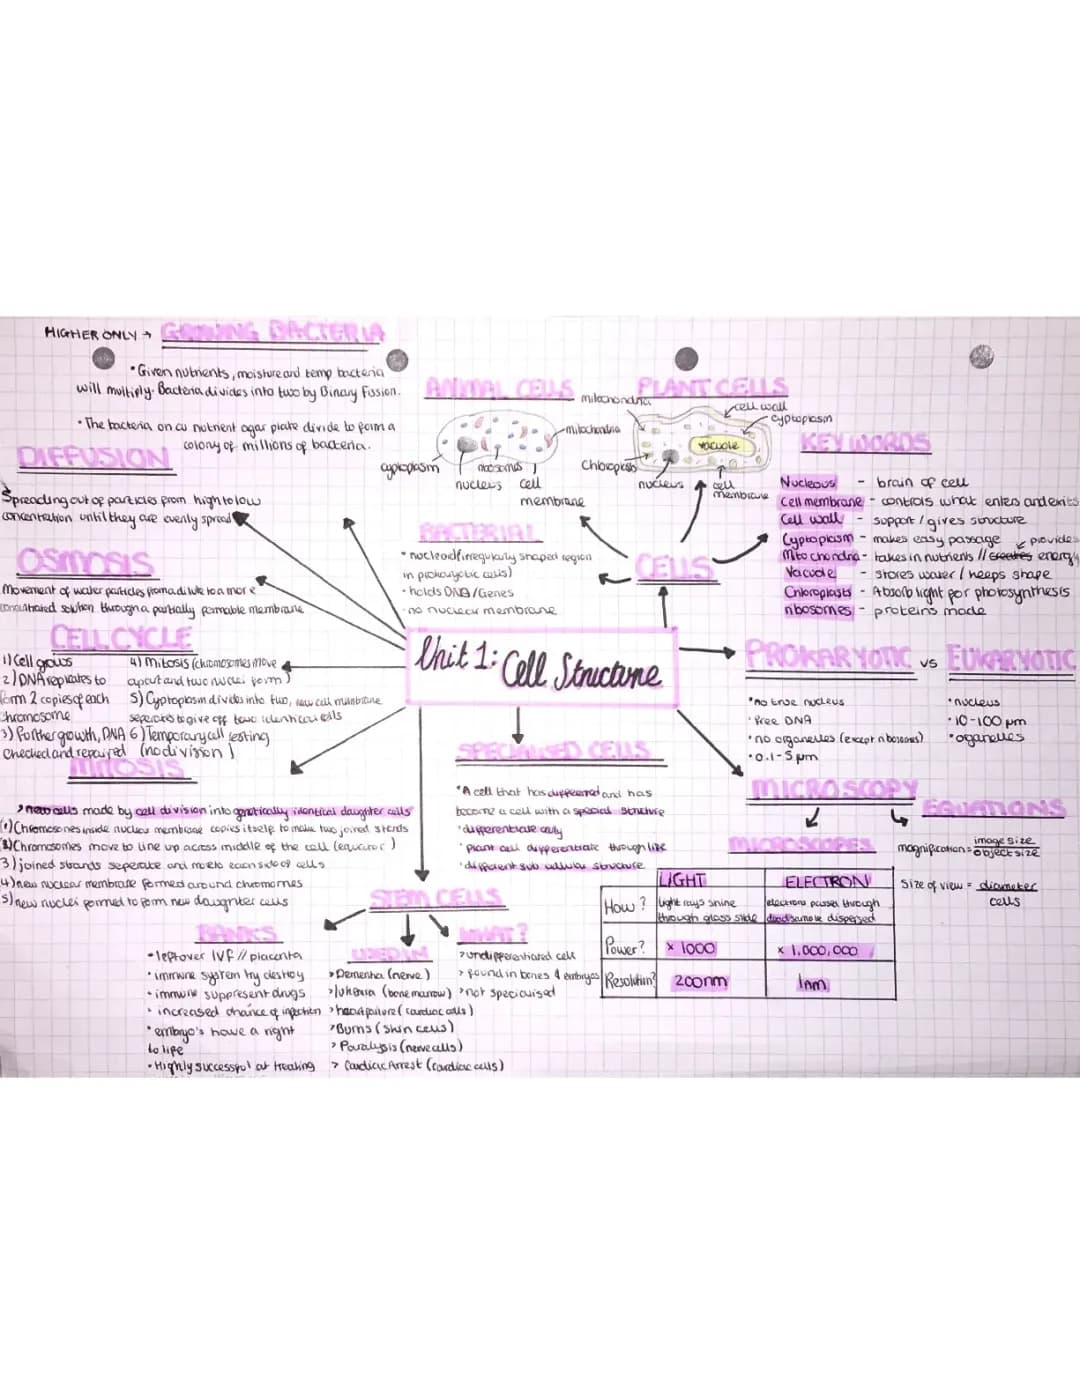 HIGHER ONLY → GROWING BACTERIA
• Given nutrients, moisture and temp bacteria
will multiply. Bacteria divides into two by Binary Fission.
• The bacteria on a nutrient agar plate divide to form a
colony of millions of bacteria.
DIFFUSION
Spreading out of particles from high to low
concentration until they are evenly spread
OSMOSIS
Movement of water particles from a dilute to a more
concentrated solution through a partially permable membrane
CELL CYCLE
1) Cell grows
2) DNA replicates to
form 2 copies of each
chromosome
3) Further growth, DNA
checked and repaired
4) Mitosis (chromosomes move
apart and two nuclei form)
5) Cyptoplasm divides into two, new cell membrane
seperates to give off two identical cells
6) Temporary cell resting
(no division)
MITOSIS
> new cells made by cell division into genetically identical daughter cells
(1) Chromosones inside nuclear membrane copies itself to make two joined strands
(2) Chromosomes move to line up across middle of the cell (equator)
3) joined strands seperate and move to each side of cells
4) new nuclear membrane formed around chromomes
5) new nuclei formed to form new daughter cells
ANIMAL CELLS
mitochondria
cyptoplasm
ribosomes
nucleus
cell
membrane
PLANT CELLS
mitochondria
cell wall
cyptoplasm
vacuole
Chloroplasts
nucleus
cell
membrane
BACTERIAL
• nucleoid (irregularly shaped region
in prokaryotic cells)
• holds DNA/Genes
• no nuclear membrane
CELLS
KEY WORDS
Nucleous - brain of cell
Cell membrane - controls what enters and exits
Cell wall - support / gives structure
Cyptoplasm - makes easy passage
provides
Mitochondria - takes in nutrients // creates energy
Vacuole - stores water / keeps shape
Chloroplasts - Absorb light for photosynthesis
ribosomes - proteins made
Unit 1: Cell Structure
PROKARYOTIC vs EUKARYOTIC
• no true nucleus
• Free DNA
• no organelles (except ribosomes)
• 0.1-5 µm
• nucleus
• 10-100 µm
• organelles
SPECIALISED CELLS
• A cell that has differed and has
become a cell with a special structure
• differentiate early
• plant cell differentiate through life
• different sub cellular structure
MICROSCOPY
MICROSCOPES
LIGHT ELECTRON
How? light rays shine through glass slide
electrons passed through dead sample dispersed
Power? x 1000 x 1,000,000
Resolution? 200nm 1nm
EQUATIONS
magnification = image size
object size
Size of view = diameter
cells
STEM CELLS
BANKS
• leftover IVF // placenta
• immune system try destroy
• immune suppresent drugs
• increased chance of infection
• embryo's have a right
to life
• Highly successful at treating
USED IN
> Dementia (nerve)
> lukemia (bone marrow)
> heart failure (cardiac cells)
> Burns (skin cells)
> Paralysis (nerve cells)
> Cardiac Arrest (cardiac cells)
WHAT?
> undifferentiated cell
> found in bones & embryos
> not specialised